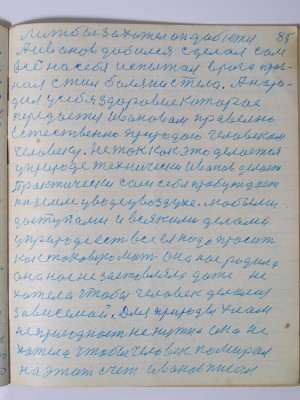 лишь бы захотел он добиться 85
А Иванов добился сделал сам
всё на себя испытал врага прог-
нал с тим болянистела. А нара-
дил у себя здоровие которае
передается Ивановам правельно
Естественно природаю человекам
человеку. Не так как это делается
у природе технически Иванов делает
Практически сам себя пробуждает
на земле у воде у воздухе. Любыми
доступами и всякими делами
у природе есть все ея надо просить
как таковую мать она нас родила
она нас не заставляла даже не
хотела чтобы человек делался
зависемай. Для природы холам
неприходнаст не нужна она не
хотела чтобы человек помирал
на этат счет Иванов писал